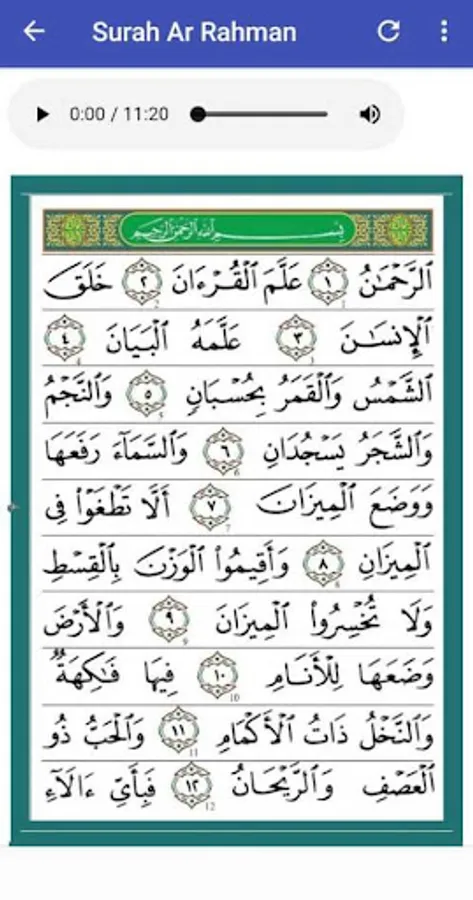 Surah Ar Rahman
0:00 / 11:20
بِسْمِ ٱللَّهِ ٱلرَّحْمَٰنِ ٱلرَّحِيمِ
ٱلرَّحْمَٰنُ ١ عَلَّمَ ٱلْقُرْءَانَ ٢ خَلَقَ
ٱلْإِنسَٰنَ ٣ عَلَّمَهُ ٱلْبَيَانَ ٤
ٱلشَّمْسُ وَٱلْقَمَرُ بِحُسْبَانٍ ٥ وَٱلنَّجْمُ
وَٱلشَّجَرُ يَسْجُدَانِ ٦ وَٱلسَّمَآءَ رَفَعَهَا
وَوَضَعَ ٱلْمِيزَانَ ٧ أَلَّا تَطْغَوْا۟ فِى
ٱلْمِيزَانِ ٨ وَأَقِيمُوا۟ ٱلْوَزْنَ بِٱلْقِسْطِ
وَلَا تُخْسِرُوا۟ ٱلْمِيزَانَ ٩ وَٱلْأَرْضَ
وَضَعَهَا لِلْأَنَامِ ١٠ فِيهَا فَٰكِهَةٌ
وَٱلنَّخْلُ ذَاتُ ٱلْأَكْمَامِ ١١ وَٱلْحَبُّ ذُو
ٱلْعَصْفِ وَٱلرَّيْحَانُ ١٢ فَبِأَىِّ ءَالَآءِ